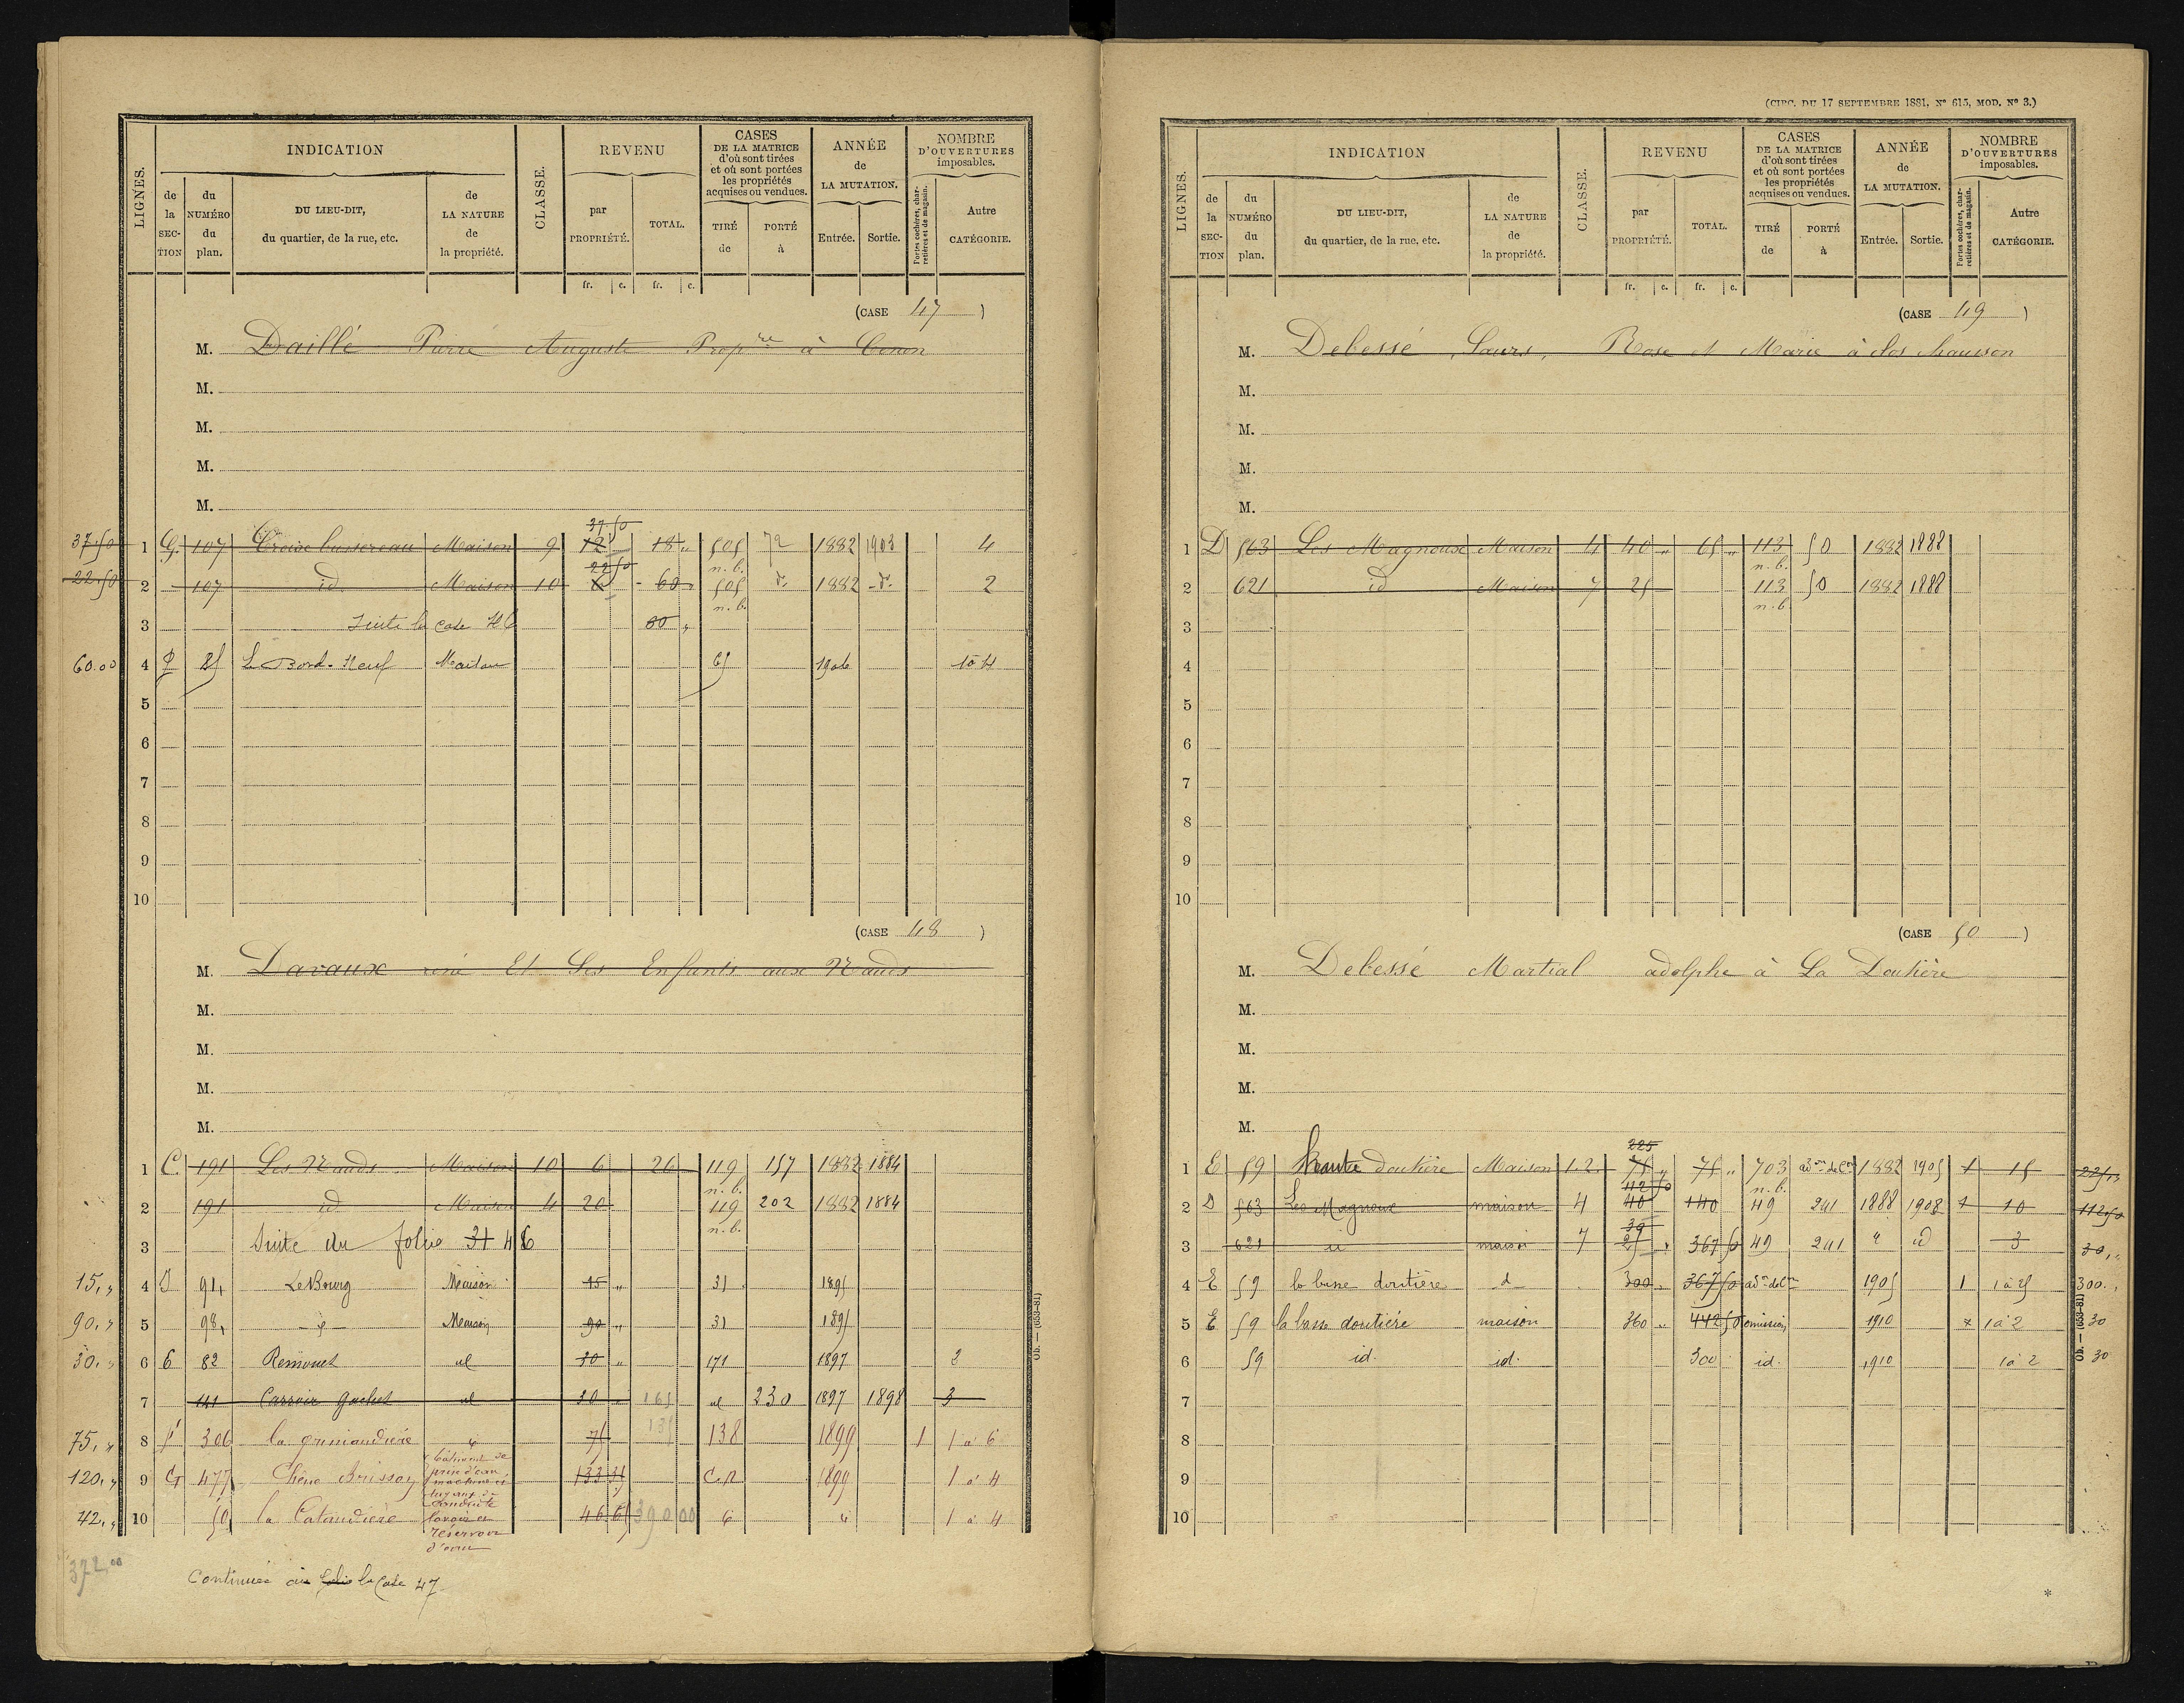 (CIRC. DU 17 SEPTEMBRE 1881, N° 615, MOD. N° 3.)
LIGNES.
INDICATION
de la SECTION
du NUMÉRO du plan.
DU LIEU-DIT, du quartier, de la rue, etc.
de LA NATURE de la propriété.
CLASSE.
REVENU
par PROPRIÉTÉ.
TOTAL.
CASES DE LA MATRICE d'où sont tirées et où sont portées les propriétés acquises ou vendues.
TIRÉ de
PORTÉ à
ANNÉE de LA MUTATION.
Entrée.
Sortie.
NOMBRE D'OUVERTURES imposables.
Portes cochères, charretières et de magasin.
Autre CATÉGORIE.
fr. c. fr. c.
(CASE 47)
M. Daillé Pierre Auguste Prop^re à Cenon
M.
M.
M.
M.
37.50
37.50 1 G. 107 Croix Maison 9 12 18 " 505 72 1882 1903 4
n. b.
22.50
22.50 2 107 id Maison 10 6 60 " 505 d° 1882 d° 2
n. b.
3 Suite la Case 46 60 "
60.00 4 25 Le Bord-Neuf Maison 65 1906 1 à 4
5
6
7
8
9
10
(CASE 48)
M. Davaux réné Et Ses Enfants aux Nauds
M.
M.
M.
M.
1 C. 191 Les Nauds Maison 10 6 26 119 157 1882 1884
n. b.
2 191 id Maison 4 20 119 202 1882 1884
n. b.
3 Suite du folio 31 46
15, " 4 D 91 Le Bourg Maison 15 " 31 1895
90, " 5 98 Maison 90 " 31 1895
30, " 6 6 82 id 30 " 171 1897 2
7 141 Carroir Gachet id 30 " 165 id 230 1897 1898 3
135
75, " 8 306 la 75 138 1899 1 1 à 6
120, " 9 G 477 Chêne Brisson bâtiment de prise d'eau, machine et tuyaux de conduite 133 35 C.N 1899 1 à 4
42, " 10 50 la lavoir et réservoir d'eau 46 65 390 00 1 à 4
372,00
Continué au folio la Case 47
Ob. — (653-81)
LIGNES.
INDICATION
de la SECTION
du NUMÉRO du plan.
DU LIEU-DIT, du quartier, de la rue, etc.
de LA NATURE de la propriété.
CLASSE.
REVENU
par PROPRIÉTÉ.
TOTAL.
CASES DE LA MATRICE d'où sont tirées et où sont portées les propriétés acquises ou vendues.
TIRÉ de
PORTÉ à
ANNÉE de LA MUTATION.
Entrée.
Sortie.
NOMBRE D'OUVERTURES imposables.
Portes cochères, charretières et de magasin.
Autre CATÉGORIE.
fr. c. fr. c.
(CASE 49)
M. Debessé Sœurs, Rose et Marie à clos chausson
M.
M.
M.
M.
1 D 563 Les Magnoux Maison 4 40 " 65 " 113 50 1882 1888
n. b.
2 621 id Maison 7 25 113 50 1882 1888
n. b.
3
4
5
6
7
8
9
10
(CASE 50)
M. Debessé Martial adolphe à La Doutière
M.
M.
M.
M.
225
1 E 59 haute doutière Maison 1.2. 75 " 75 " 703 1882 1905 1 15 225 "
n. b.
112 50
2 D 563 Les Magnoux maison 4 40 140 49 241 1888 1908 1 10 112,50
30
3 621 id maison 7 25 " 367 50 49 241 " id 3 30, "
4 E 59 la basse doutière d 300 " 367 50 1905 1 1 à 25 300. "
5 E 59 la basse doutière maison 360 " 442 50 omission 1910 1 à 2 30
6 59 id. id. 300 id. 1910 1 à 2 30
7
8
9
10
Ob. — (653-81)
*